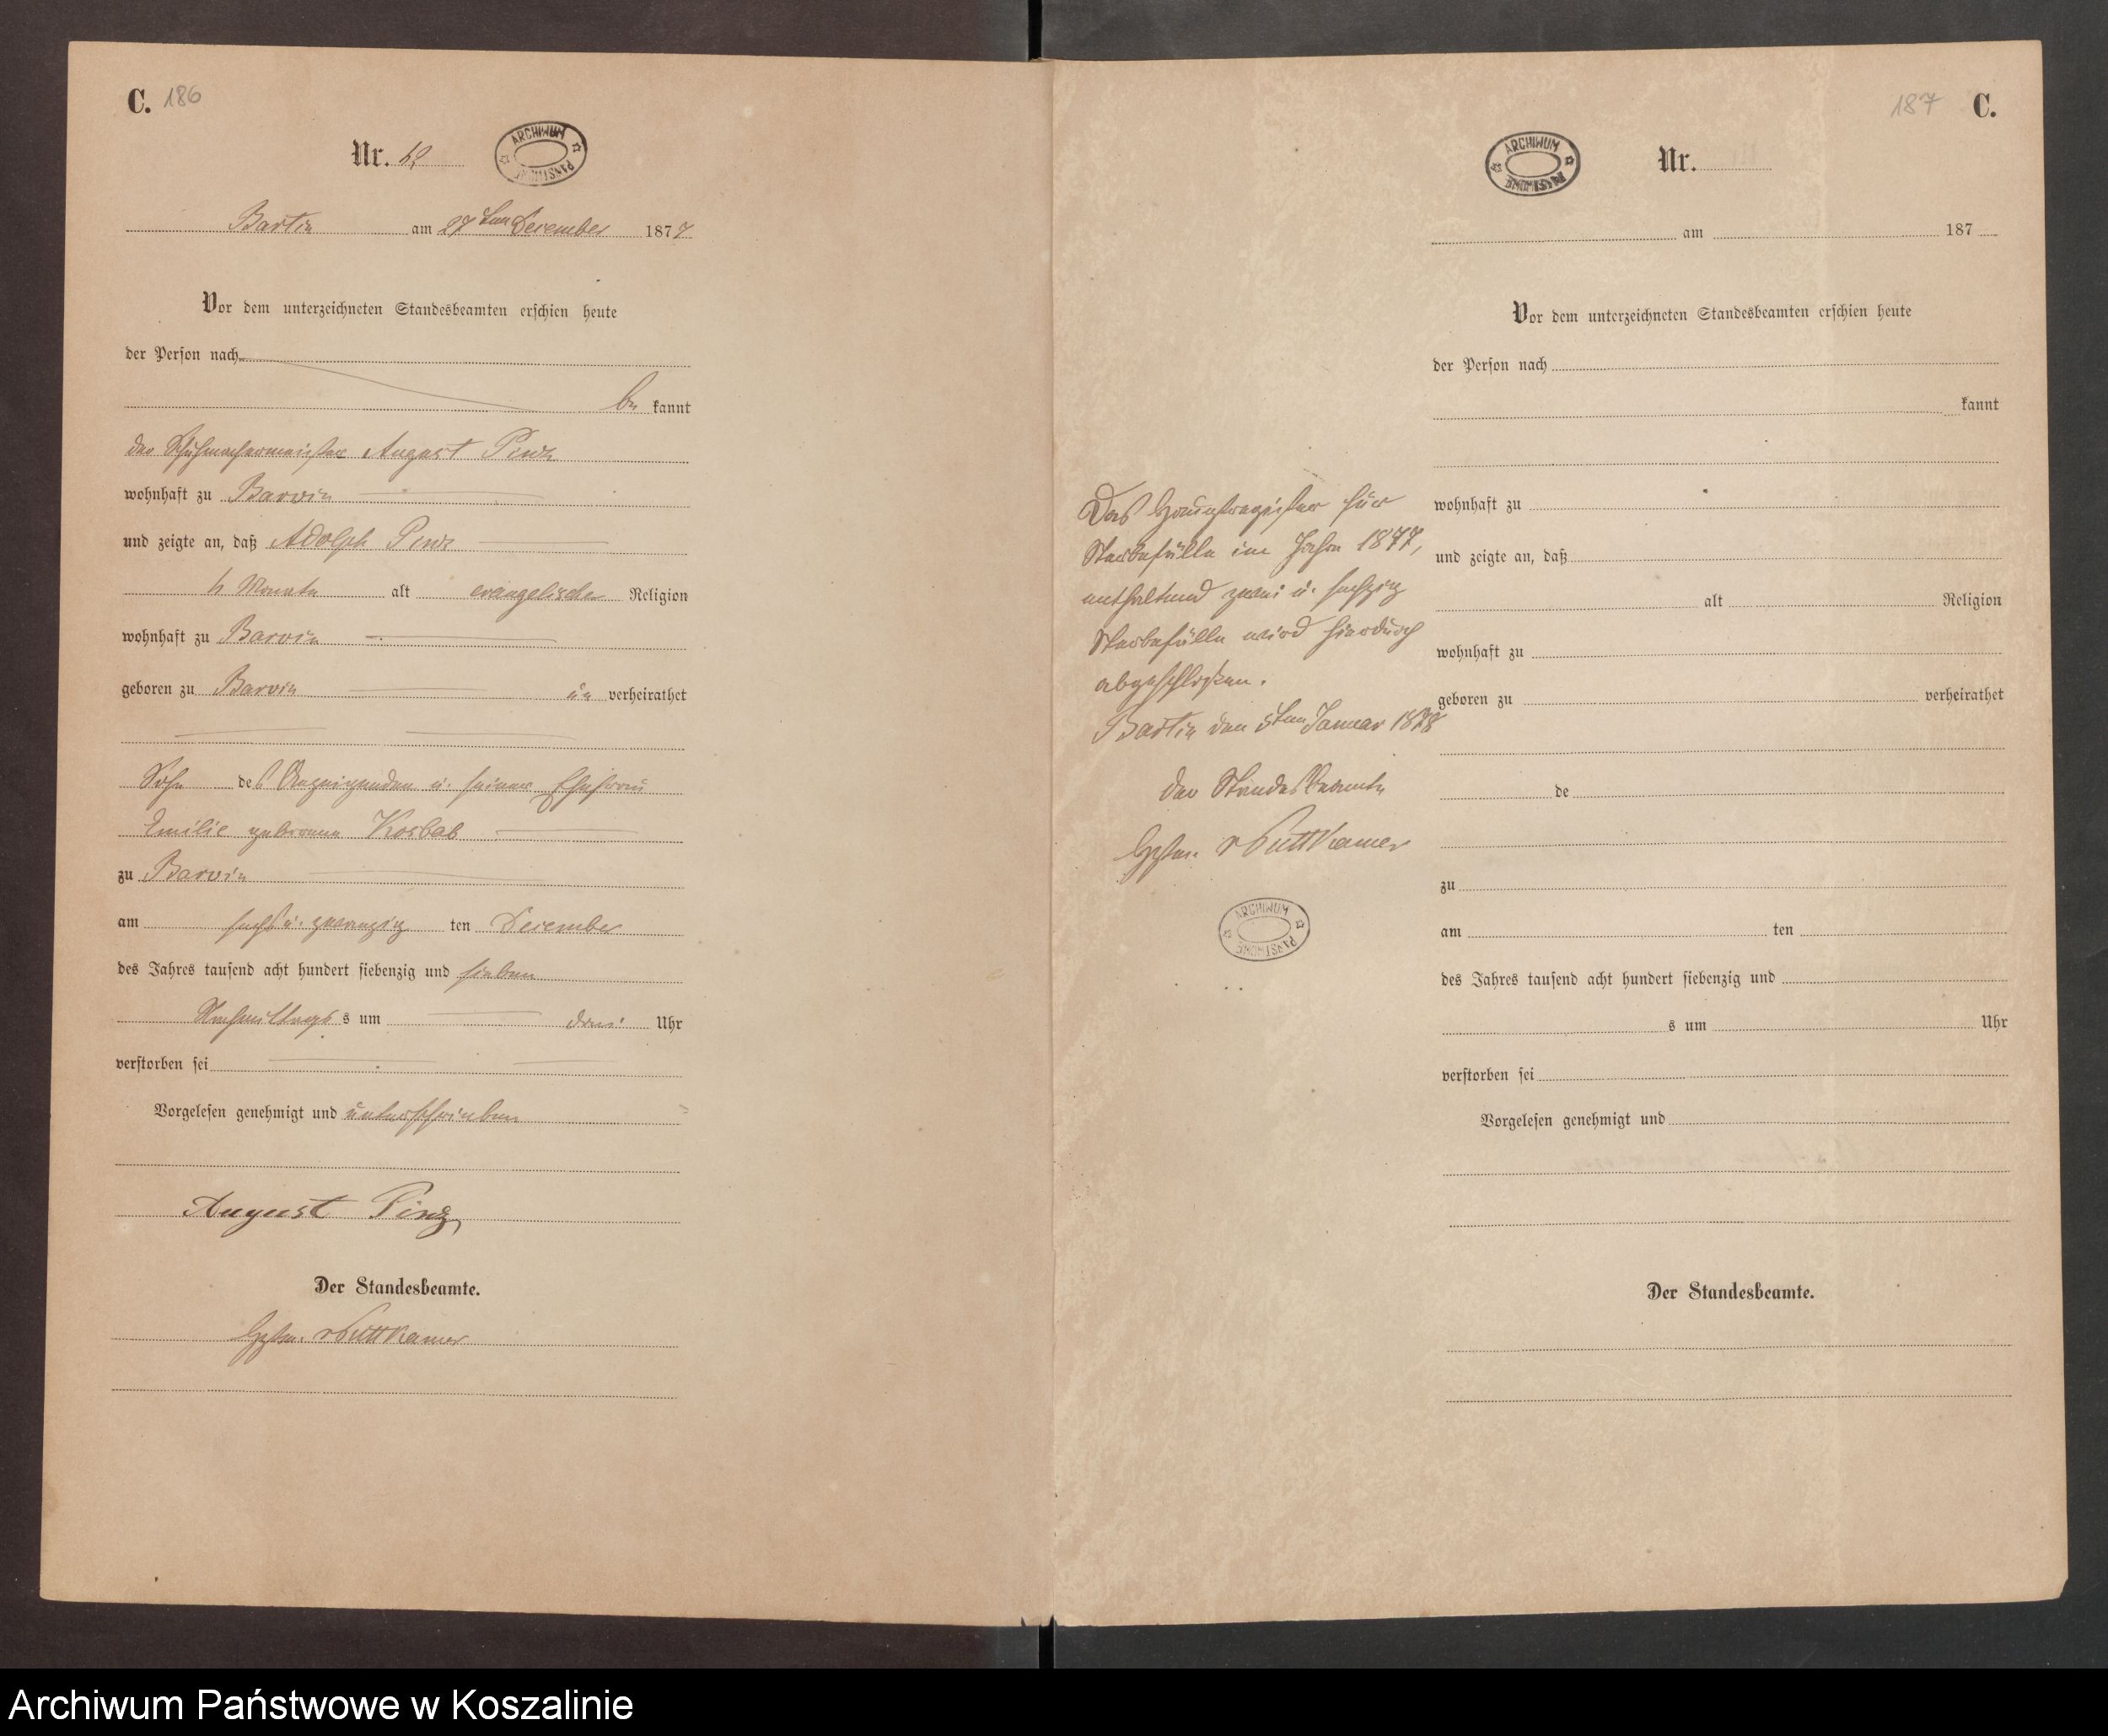 C. 186
Nr. 62
ARCHIWUM PAŃSTWOWE
Bartin am 27ten December 1877
Vor dem unterzeichneten Standesbeamten erschien heute
der Person nach
be kannt
der Schuhmachermeister August Pinz
wohnhaft zu Barvin
und zeigte an, daß Adolph Pinz
Monate alt evangelischer Religion
wohnhaft zu Barvin
geboren zu Barvin un verheirathet
Sohn des Anzeigenden u. seiner Ehefrau
Emilie geborene Kosbab
zu Barvin
am sechs u. zwanzig ten December
des Jahres tausend acht hundert siebenzig und sieben
Nachmittags s um drei Uhr
verstorben sei
Vorgelesen genehmigt und unterschrieben
August Pinz
Der Standesbeamte.
v Puttkamer
187 C.
ARCHIWUM PAŃSTWOWE
Nr.
am 187
Vor dem unterzeichneten Standesbeamten erschien heute
der Person nach
kannt
wohnhaft zu
und zeigte an, daß
alt Religion
wohnhaft zu
geboren zu verheirathet
de
zu
am ten
des Jahres tausend acht hundert siebenzig und
s um Uhr
verstorben sei
Vorgelesen genehmigt und
Der Standesbeamte.
Das Hauptregister für
Sterbefälle im Jahre 1877,
enthaltend zwei u. sechzig
Sterbefälle wird hierdurch
abgeschlossen.
Bartin den 5ten Januar 1878
Der Standesbeamte
v Puttkamer
ARCHIWUM PAŃSTWOWE
Archiwum Państwowe w Koszalinie